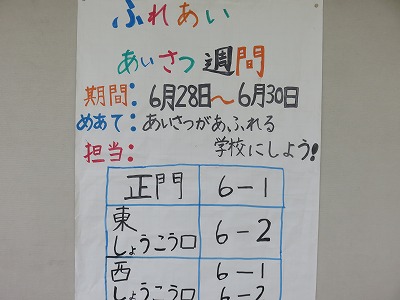 ふれあい
あいさつ週間
期間：6月28日〜6月30日
めあて：あいさつがあ、ふれる
学校にしよう！
担当：
正門 6-1
東 しょうこう口 6-2
西 しょうこう口 6-1 6-2